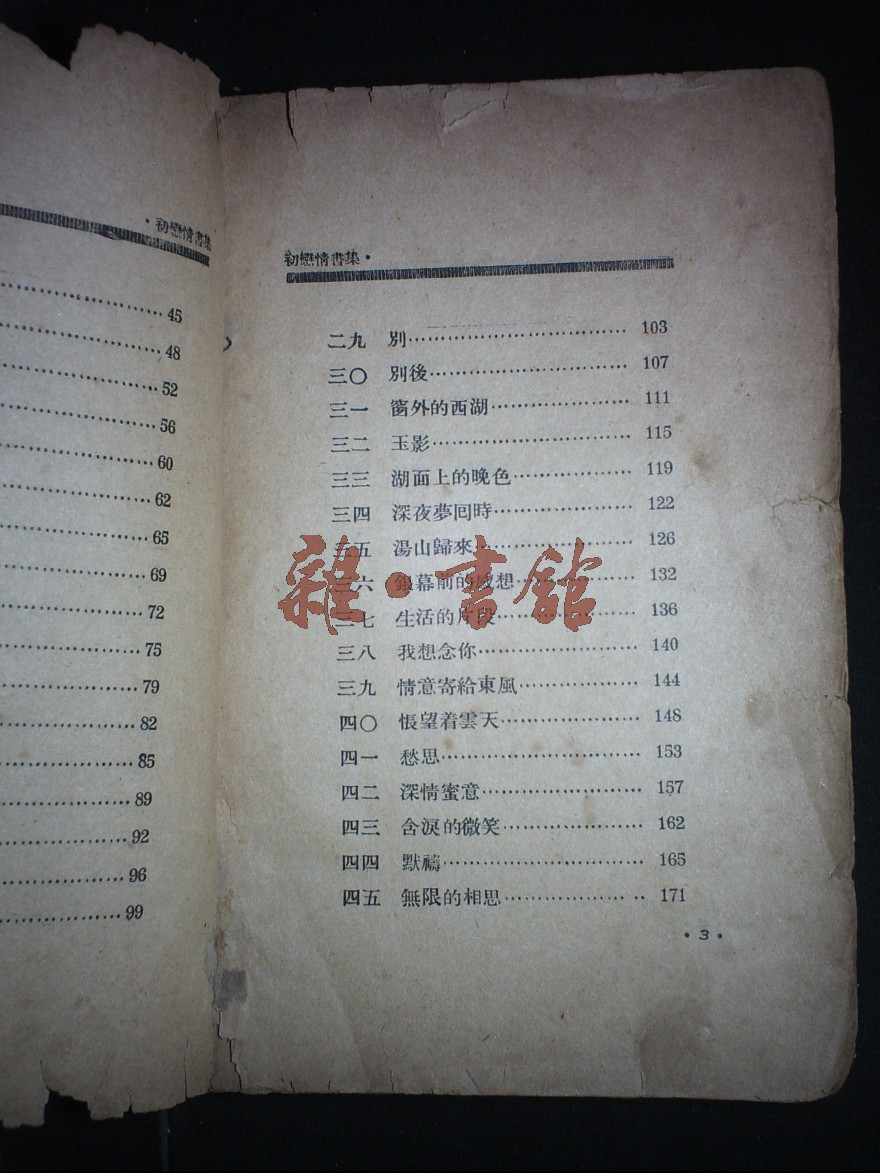 ·初戀情書集
45
48
52
56
60
62
65
69
72
75
79
82
85
89
92
96
99
初戀情書集·
二九 別 103
三〇 別後 107
三一 窗外的西湖 111
三二 玉影 115
三三 湖面上的晚色 119
三四 深夜夢囘時 122
三五 湯山歸來 126
三六 銀幕前的感想 132
三七 生活的片段 136
三八 我想念你 140
三九 情意寄給東風 144
四〇 悵望着雲天 148
四一 愁思 153
四二 深情蜜意 157
四三 含淚的微笑 162
四四 默禱 165
四五 無限的相思 171
·3·
雜·書館